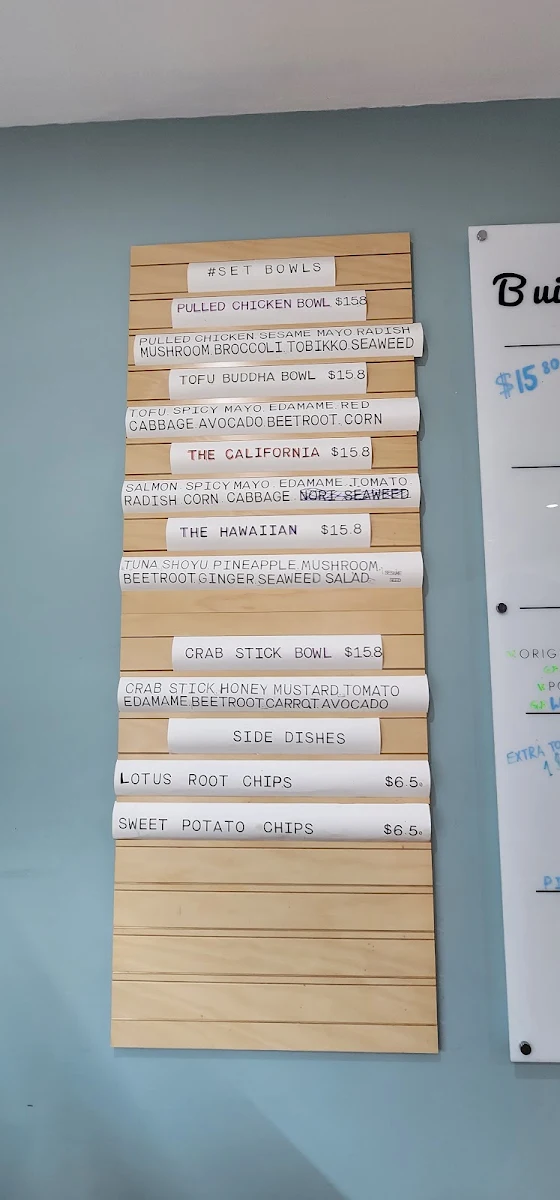 #SET BOWLS
PULLED CHICKEN BOWL $158
PULLED CHICKEN SESAME MAYO RADISH
MUSHROOM BROCCOLI TOBIKKO SEAWEED
TOFU BUDDHA BOWL $15.8
TOFU SPICY MAYO EDAMAME RED
CABBAGE AVOCADO BEETROOT CORN
THE CALIFORNIA $15.8
SALMON SPICY MAYO EDAMAME TOMATO
RADISH CORN CABBAGE NORI SEAWEED
THE HAWAIIAN $15.8
TUNA SHOYU PINEAPPLE MUSHROOM
BEETROOT GINGER SEAWEED SALAD SESAME SEED
CRAB STICK BOWL $15.8
CRAB STICK HONEY MUSTARD TOMATO
EDAMAME BEETROOT CARROT AVOCADO
SIDE DISHES
LOTUS ROOT CHIPS $6.5
SWEET POTATO CHIPS $6.5
Bui
$15.80
ORIG
EXTRA TO